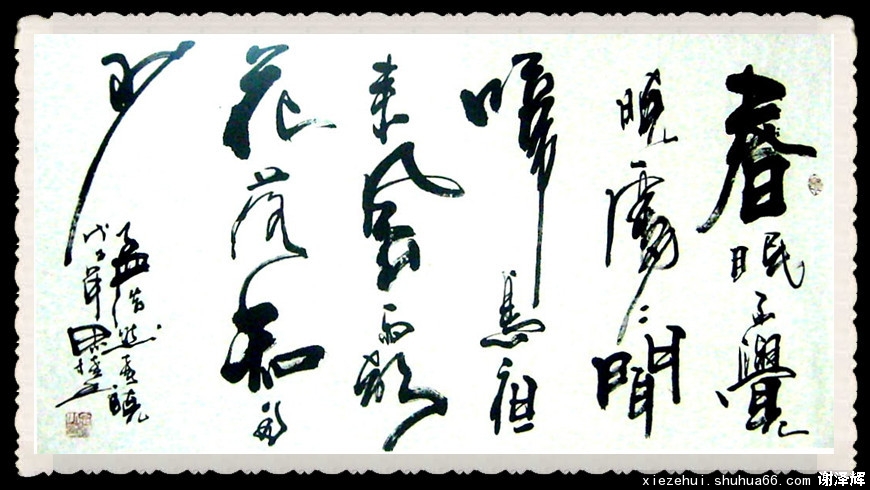 春眠不覺
曉處々聞
啼鳥夜
来風雨聲
花落知多
少
孟浩然春曉
戊子年
xiezehui.shuhua66.com 谢泽辉